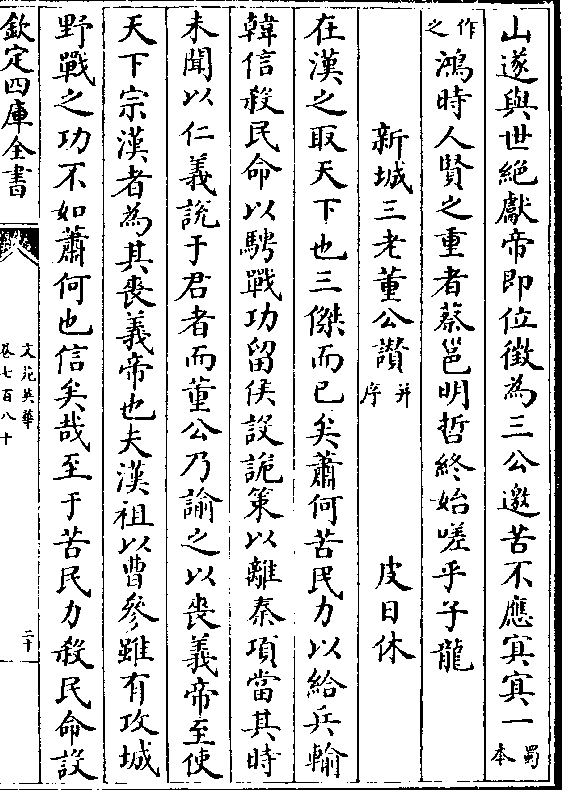 山遂與世絶獻帝即位徵為三公邀苦不應寘寘一蜀本
作之鴻時人賢之重者蔡邕明哲終始嗟乎子龍
新城三老董公讃并序 皮日休
在漢之取天下也三傑而已矣蕭何苦民力以給兵輸
韓信殺民命以騁戰功留侯設詭策以離秦項當其時
未聞以仁義説于君者而董公乃諭之以喪義帝至使
天下宗漢者為其喪義帝也夫漢祖以曹參雖有攻城
野戰之功不如蕭何也信矣哉至于苦民力殺民命設
欽定四庫全書
文苑英華
卷七百八十
二十